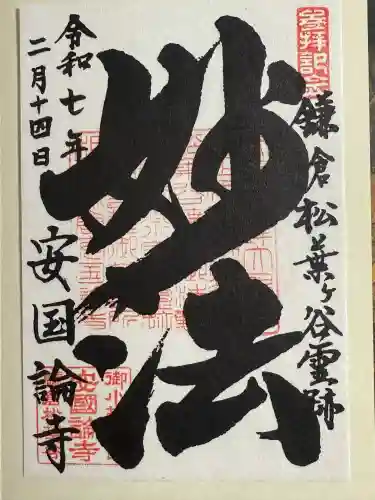 参拝記念
鎌倉松葉ヶ谷霊跡
妙法
令和七年
二月十四日
安国論寺